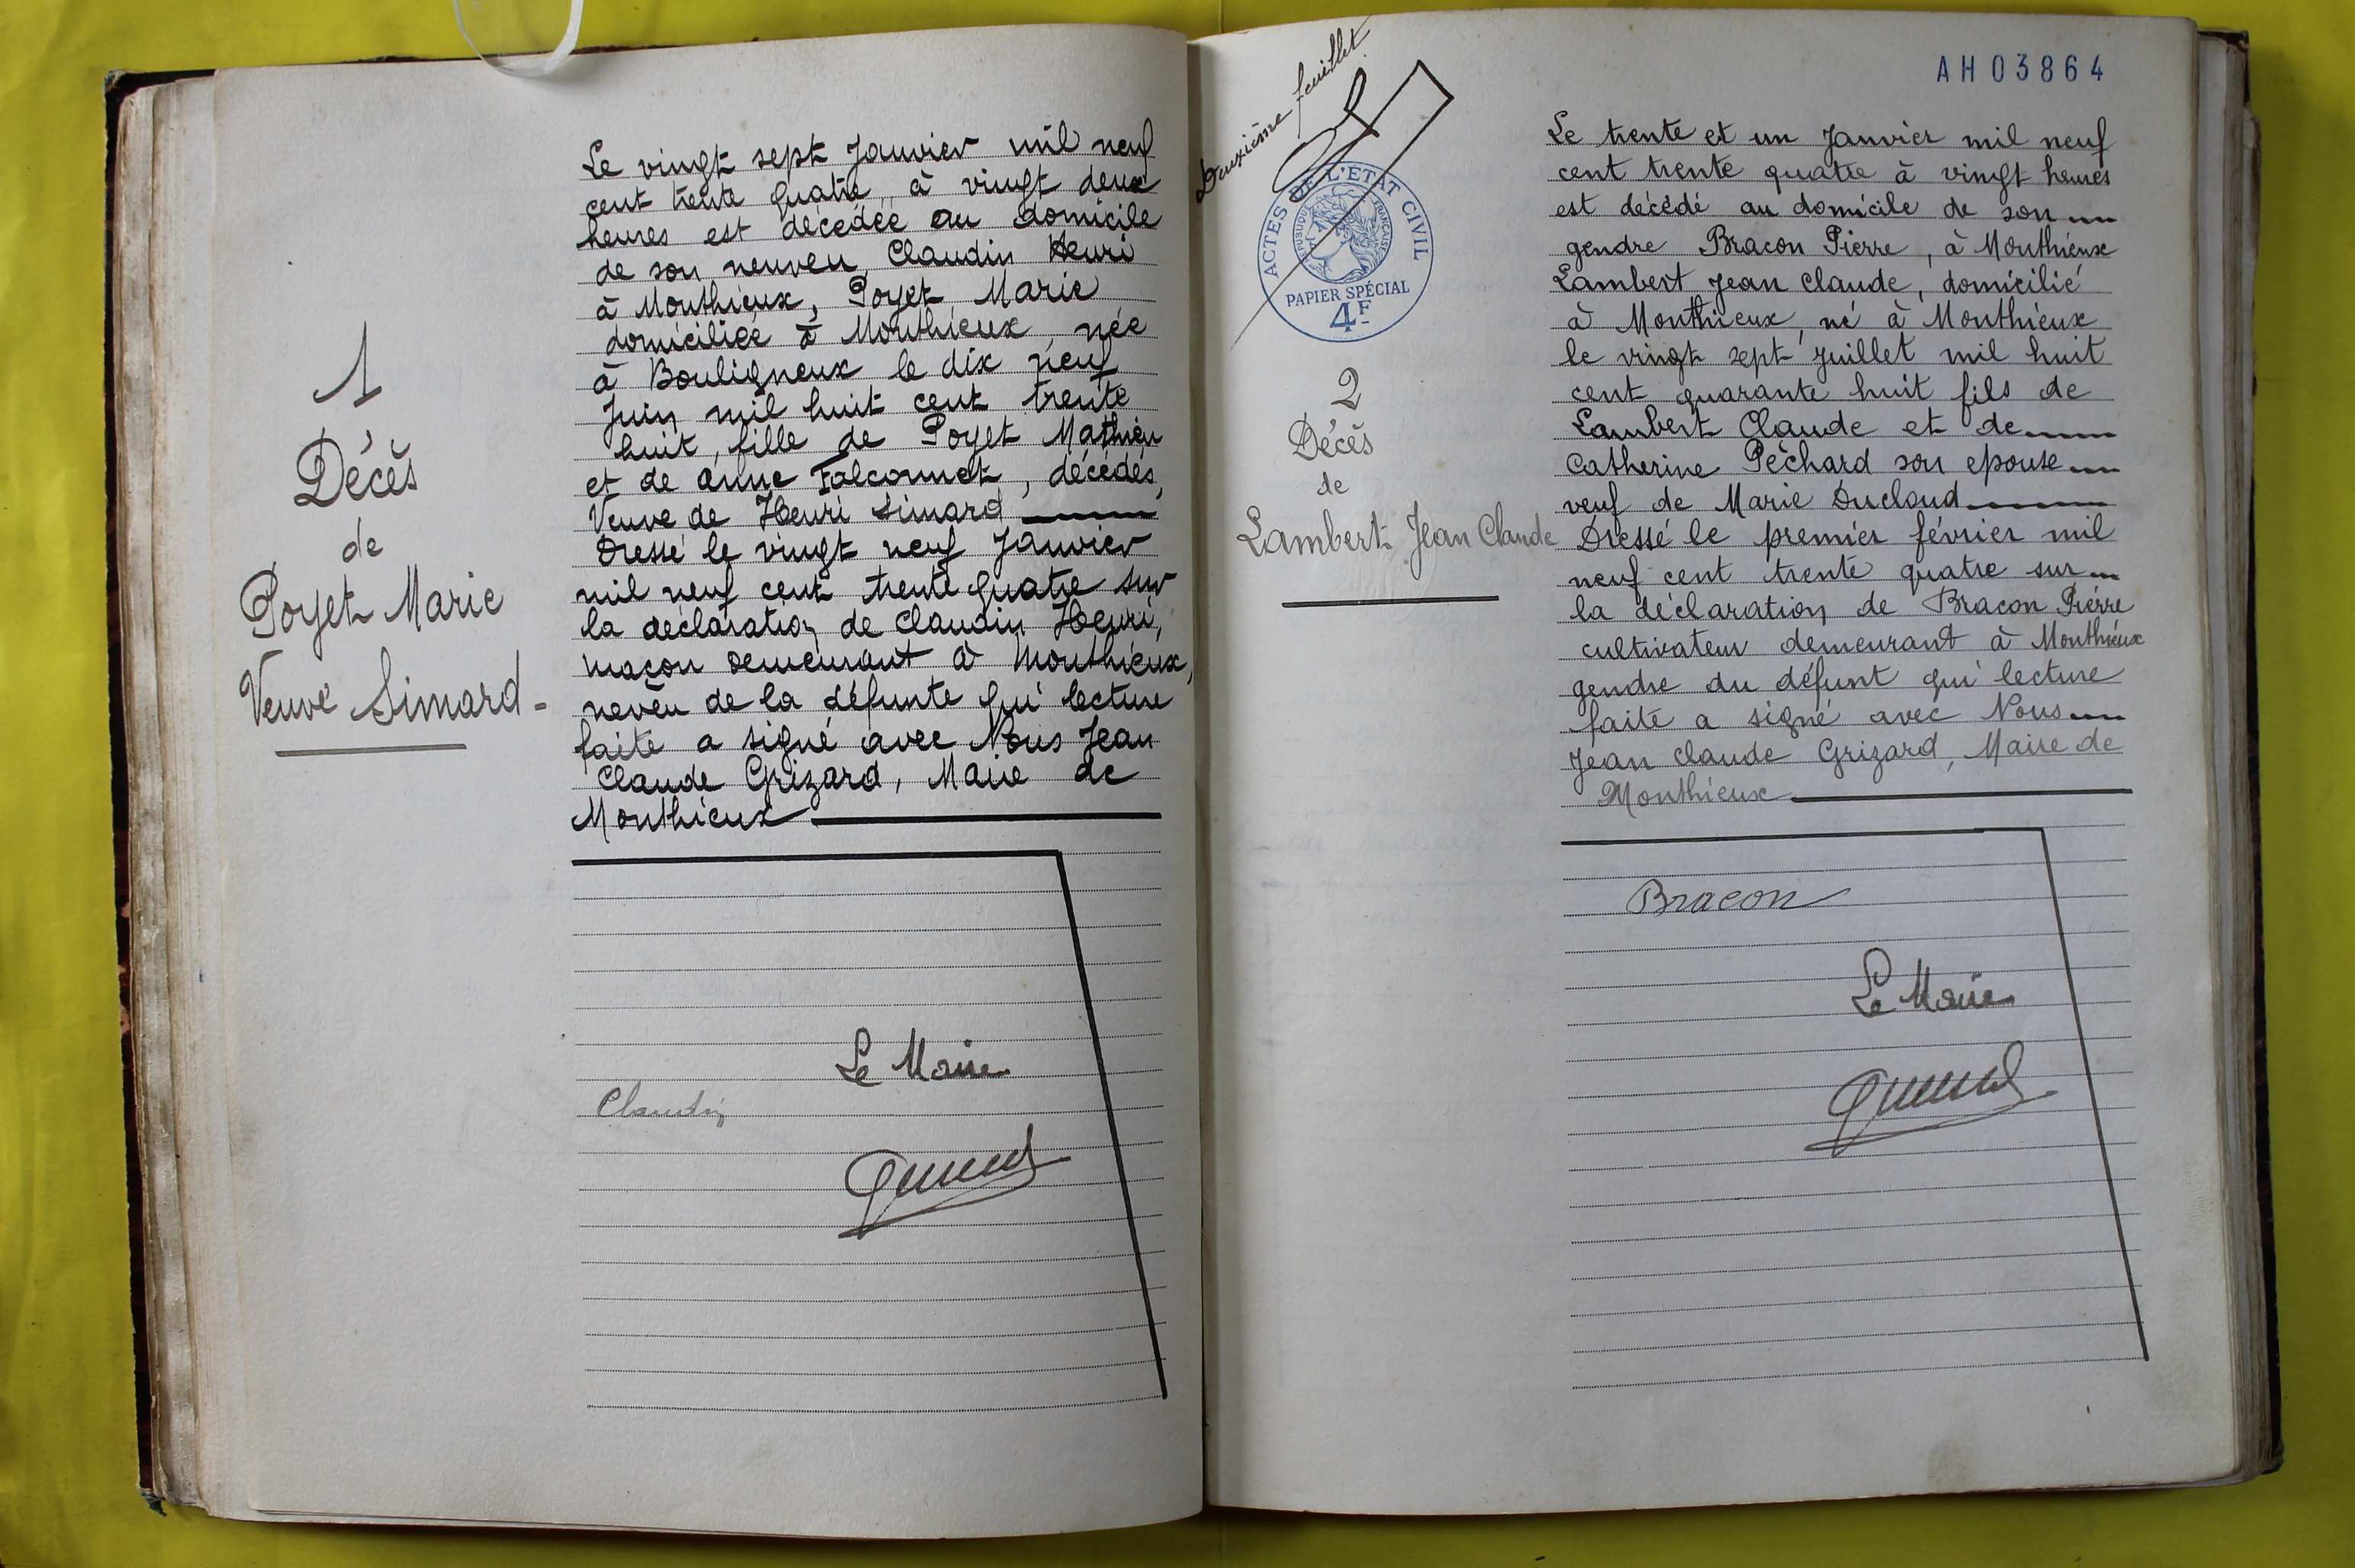 1
Décès
de
Poyet Marie
Veuve Simard -
Le vingt sept Janvier mil neuf
cent trente quatre, à vingt deux
heures est décédée au domicile
de son neuveu Claudin Henri
à Monthieux, Poyet Marie
domiciliée à Monthieux, née
à Bouligneux le dix neuf
Juin mil huit cent trente
huit, fille de Poyet Mathieu
et de Anne Falconnet, décédés,
Veuve de Henri Simard
Dressé le vingt neuf Janvier
mil neuf cent trente quatre sur
la déclaration de Claudin Henri,
maçon demeurant à Monthieux,
neveu de la défunte qui lecture
faite a signé avec Nous Jean
Claude Grizard, Maire de
Monthieux
Le Maire
Claudin
Deuxième feuillet
ACTES DE L'ETAT CIVIL
REPUBLIQUE FRANÇAISE
PAPIER SPÉCIAL
4F
2
Décès
de
Lambert Jean Claude
AH03864
Le trente et un Janvier mil neuf
cent trente quatre à vingt heures
est décédé au domicile de son
gendre Bracon Pierre, à Monthieux
Lambert Jean Claude, domicilié
à Monthieux, né à Monthieux
le vingt sept Juillet mil huit
cent quarante huit fils de
Lambert Claude et de
Catherine Péchard son epouse
veuf de Marie Ducloud
Dressé le premier février mil
neuf cent trente quatre sur
la déclaration de Bracon Pierre
cultivateur demeurant à Monthieux
gendre du défunt qui lecture
faite a signé avec Nous
Jean Claude Grizard, Maire de
Monthieux
Bracon
Le Maire